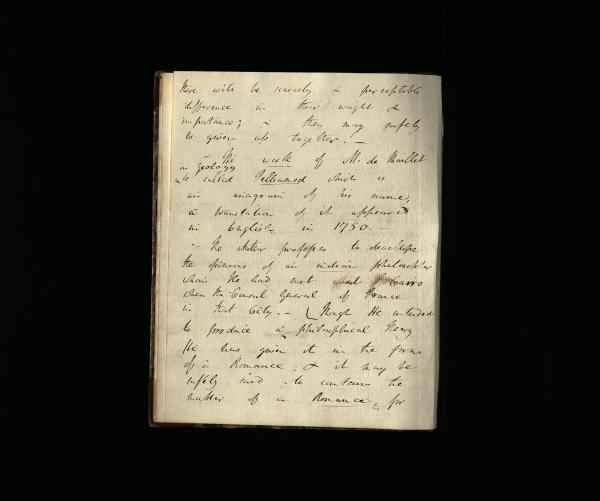 there will be scarcely a perceptible
difference in their weight &
importance; & they may safely
be given up together. —
— The work of M. de Maillet
on geology
is called Telliamed which is
an anagram of his name,
a translation of it appeared
in English in 1750. —
— The Author professes to develope
the opinions of an indian philosopher
whom He had met at Cairo
when the Consul General of France
in that City. — Though He intended
to produce a philosophical Theory
He has given it in the form
of a Romance & it may be
safely said to contain the
matter of a Romance, for